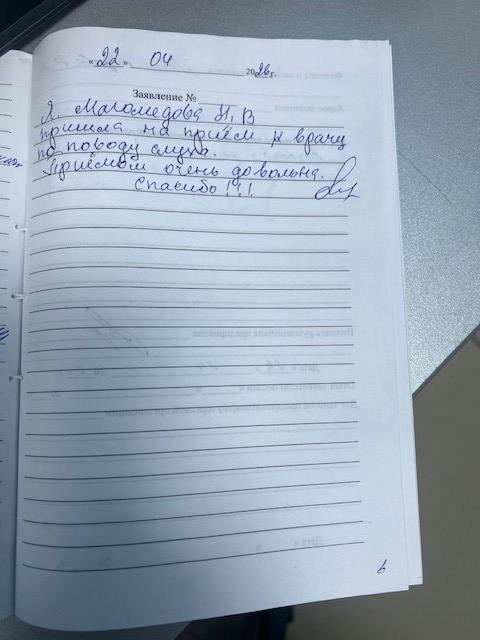 « 22 » 04 2026 г.
Заявление №
Я, Магомедова Н, В
пришла на приём к врачу
по поводу слуха.
Приёмом очень довольна.
Спасибо!!!
6